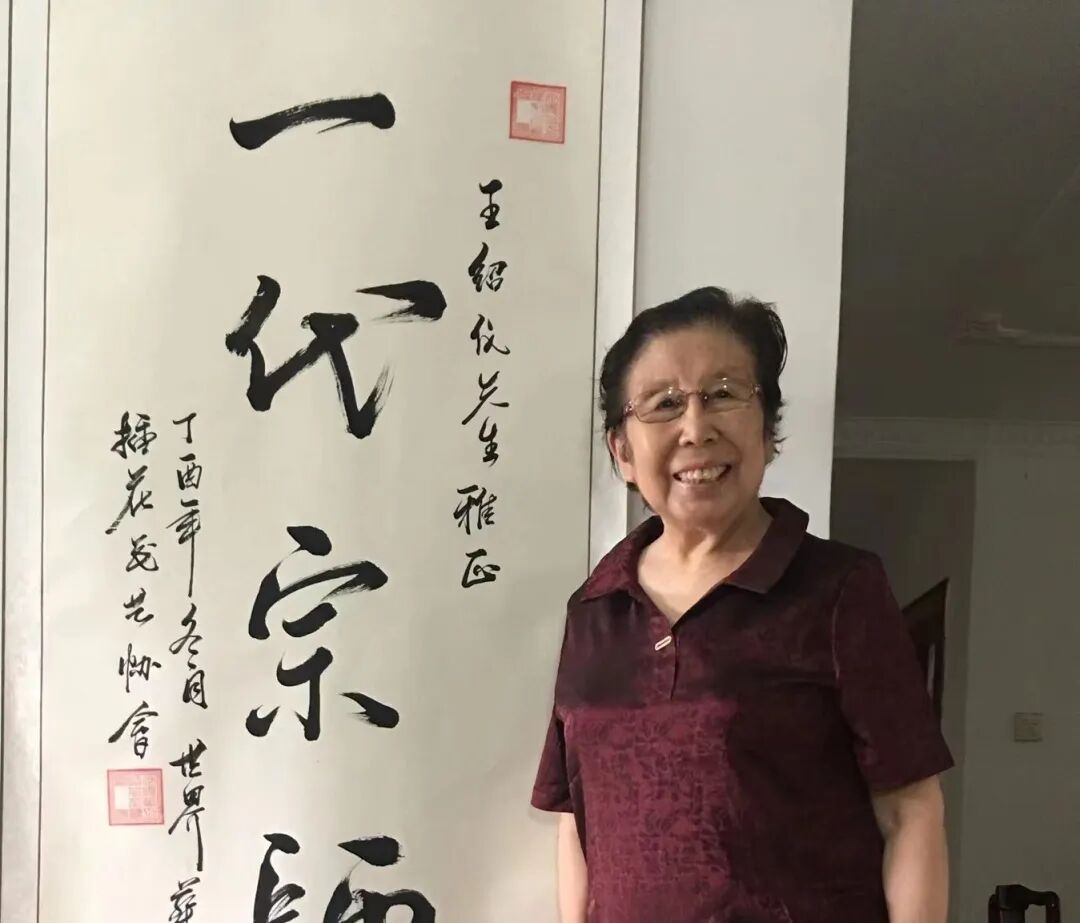 王绍仪先生雅正
一代宗師
丁酉年冬月 世界
插花花艺协會